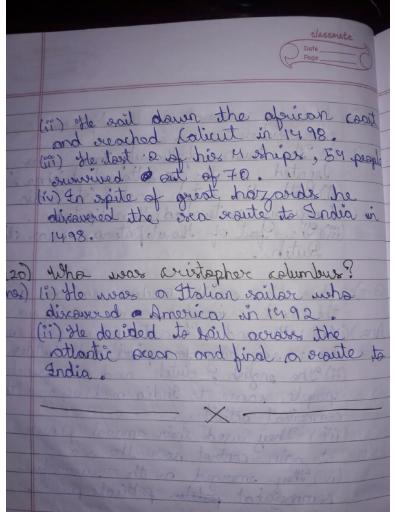 classmate
Date
Page
(ii) He sail down the african coast
and reached Calicut in 1498.
(iii) He lost 2 of his 4 ships, 54 people
survived out of 70.
(iv) In spite of great hazards he
discovered the sea route to India in
1498.
20) Who was cristopher columbus?
ns) (i) He was a Italian sailor who
discovered America in 1492.
(ii) He decided to sail across the
atlantic ocean and find a route to
India.